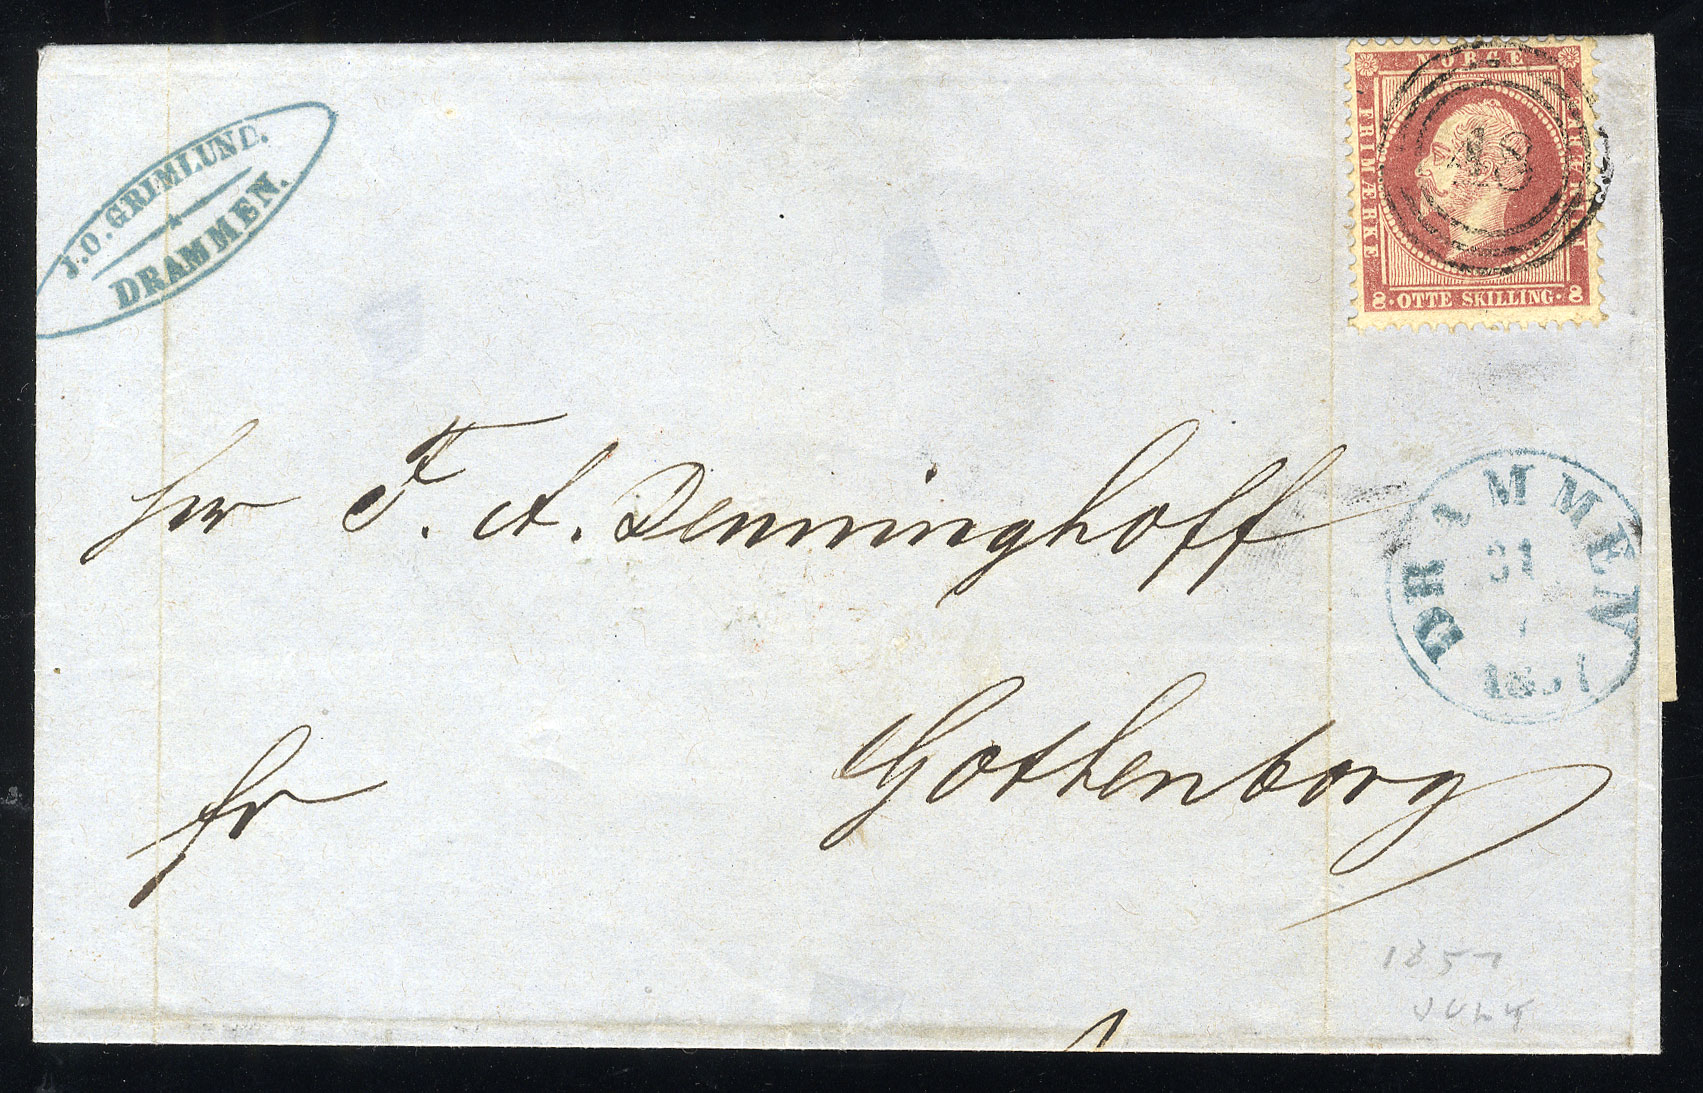 J.O. GRIMLUND.
DRAMMEN.
NORGE
FRIMÆRKE
OTTE SKILLING
8 8
18
Herr F. A. Denninghoff
DRAMMEN
31
7
1857
fr
Gothenborg
1857
JULY